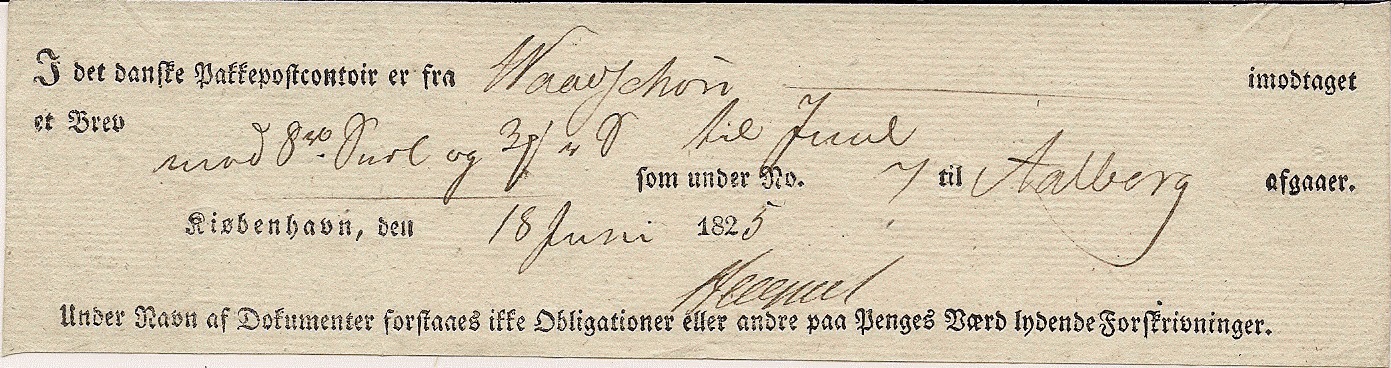 I det danske Pakkepostcontoir er fra Waagschön imodtaget
et Brev
med 8 og 3 til Juul
som under No. 7 til Aalborg afgaaer.
Kiøbenhavn, den 18 Juni 1825
Under Navn af Dokumenter forstaaes ikke Obligationer eller andre paa Penges Værd lydende Forskrivninger.